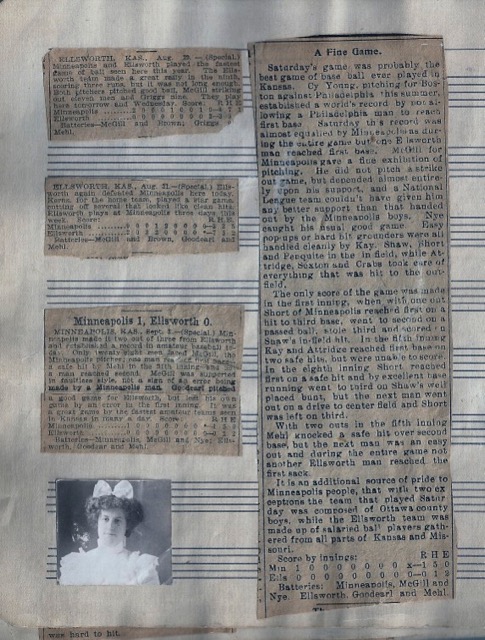 ELLSWORTH, KAS., Aug. —(Special.)
Minneapolis and Ellsworth played the fastest
game of ball seen here this year. The Ells-
worth team made a great rally in the ninth,
scoring three runs, but it was not long enough.
Both pitchers pitched good ball, McGill striking
out eleven men and Griggs nine. They play
here tomorrow and Wednesday. Score: R. H. E.
Minneapolis
Ellsworth
Batteries—McGill and Brown; Griggs
Mehl.
ELLSWORTH, KAS., Aug. 31.—(Special.) Ells-
worth again defeated Minneapolis here today.
for the home team, played a star game,
cutting off several that looked like clean hits.
Ellsworth plays at Minneapolis three days this
week. Score: R. H. E.
Minneapolis
Ellsworth
Batteries—McGill and Brown, Goodearl and
Mehl.
Minneapolis 1, Ellsworth 0.
MINNEAPOLIS, KAS., Sept. —(Special.) Min-
neapolis made it two out of three from Ellsworth
and established a record in amateur baseball to-
day. Only twenty-eight men faced McGill, the
Minneapolis pitcher; one man
a safe hit by Mehl in the fifth inning
man reached second. McGill was supported
in faultless style, not a sign of an error being
made by a Minneapolis man. Goodearl pitched
a good game for Ellsworth, but lost his own
game by an error in the first inning. It was
a great game by the fastest amateur teams seen
in Kansas in many a day. Score: R. H. E.
Minneapolis
Ellsworth
Batteries—Minneapolis, McGill and Nye; Ells-
worth, Goodear and Mehl.
A Fine Game.
Saturday's game was probably the
best game of base ball ever played in
Kansas. Cy Young, pitching for Bos-
ton against Philadelphia this summer,
established a world's record by not al-
lowing a Philadelphia man to reach
first base. Saturday this record was
almost equalled by Minneapolis dur-
ing the entire game but one Ellsworth
man reached first base. McGill for
Minneapolis gave a fine exhibition of
pitching. He did not pitch a strike
out game, but depended almost entire-
ly upon his support, and a National
League team couldn't have given him
any better support than that handed
out by the Minneapolis boys. Nye
caught his usual good game. Easy
pop-ups or hard hit grounders were all
handled cleanly by Kay, Shaw, Short
and Penquite in the in field, while At-
tridge, Sexton and Crabs took care of
everything that was hit to the out-
field.
The only score of the game was made
in the first inning, when with one out
Short of Minneapolis reached first on a
hit to third base, went to second on a
passed ball, stole third and scored on
Shaw's in-field hit. In the fifth inning
Kay and Attridge reached first base on
two safe hits, but were unable to score.
In the eighth inning Short reached
first on a safe hit and by excellent base
running went to third on Shaw's well
placed bunt, but the next man went
out on a drive to center field and Short
was left on third.
With two outs in the fifth inning
Mehl knocked a safe hit over second
base, but the next man was an easy
out and during the entire game not
another Ellsworth man reached the
first sack.
It is an additional source of pride to
Minneapolis people, that with two ex
ceptions the team that played Satur
day was composed of Ottawa county
boys, while the Ellsworth team was
made up of salaried ball players gath-
ered from all parts of Kansas and Mis-
souri.
Score by innings: R H E
Min 1 0 0 0 0 0 0 0 x—1 5 0
Ells 0 0 0 0 0 0 0 0 0—0 1 2
Batteries: Minneapolis, McGill and
Nye. Ellsworth, Goodearl and Mehl.
was hard to hit.